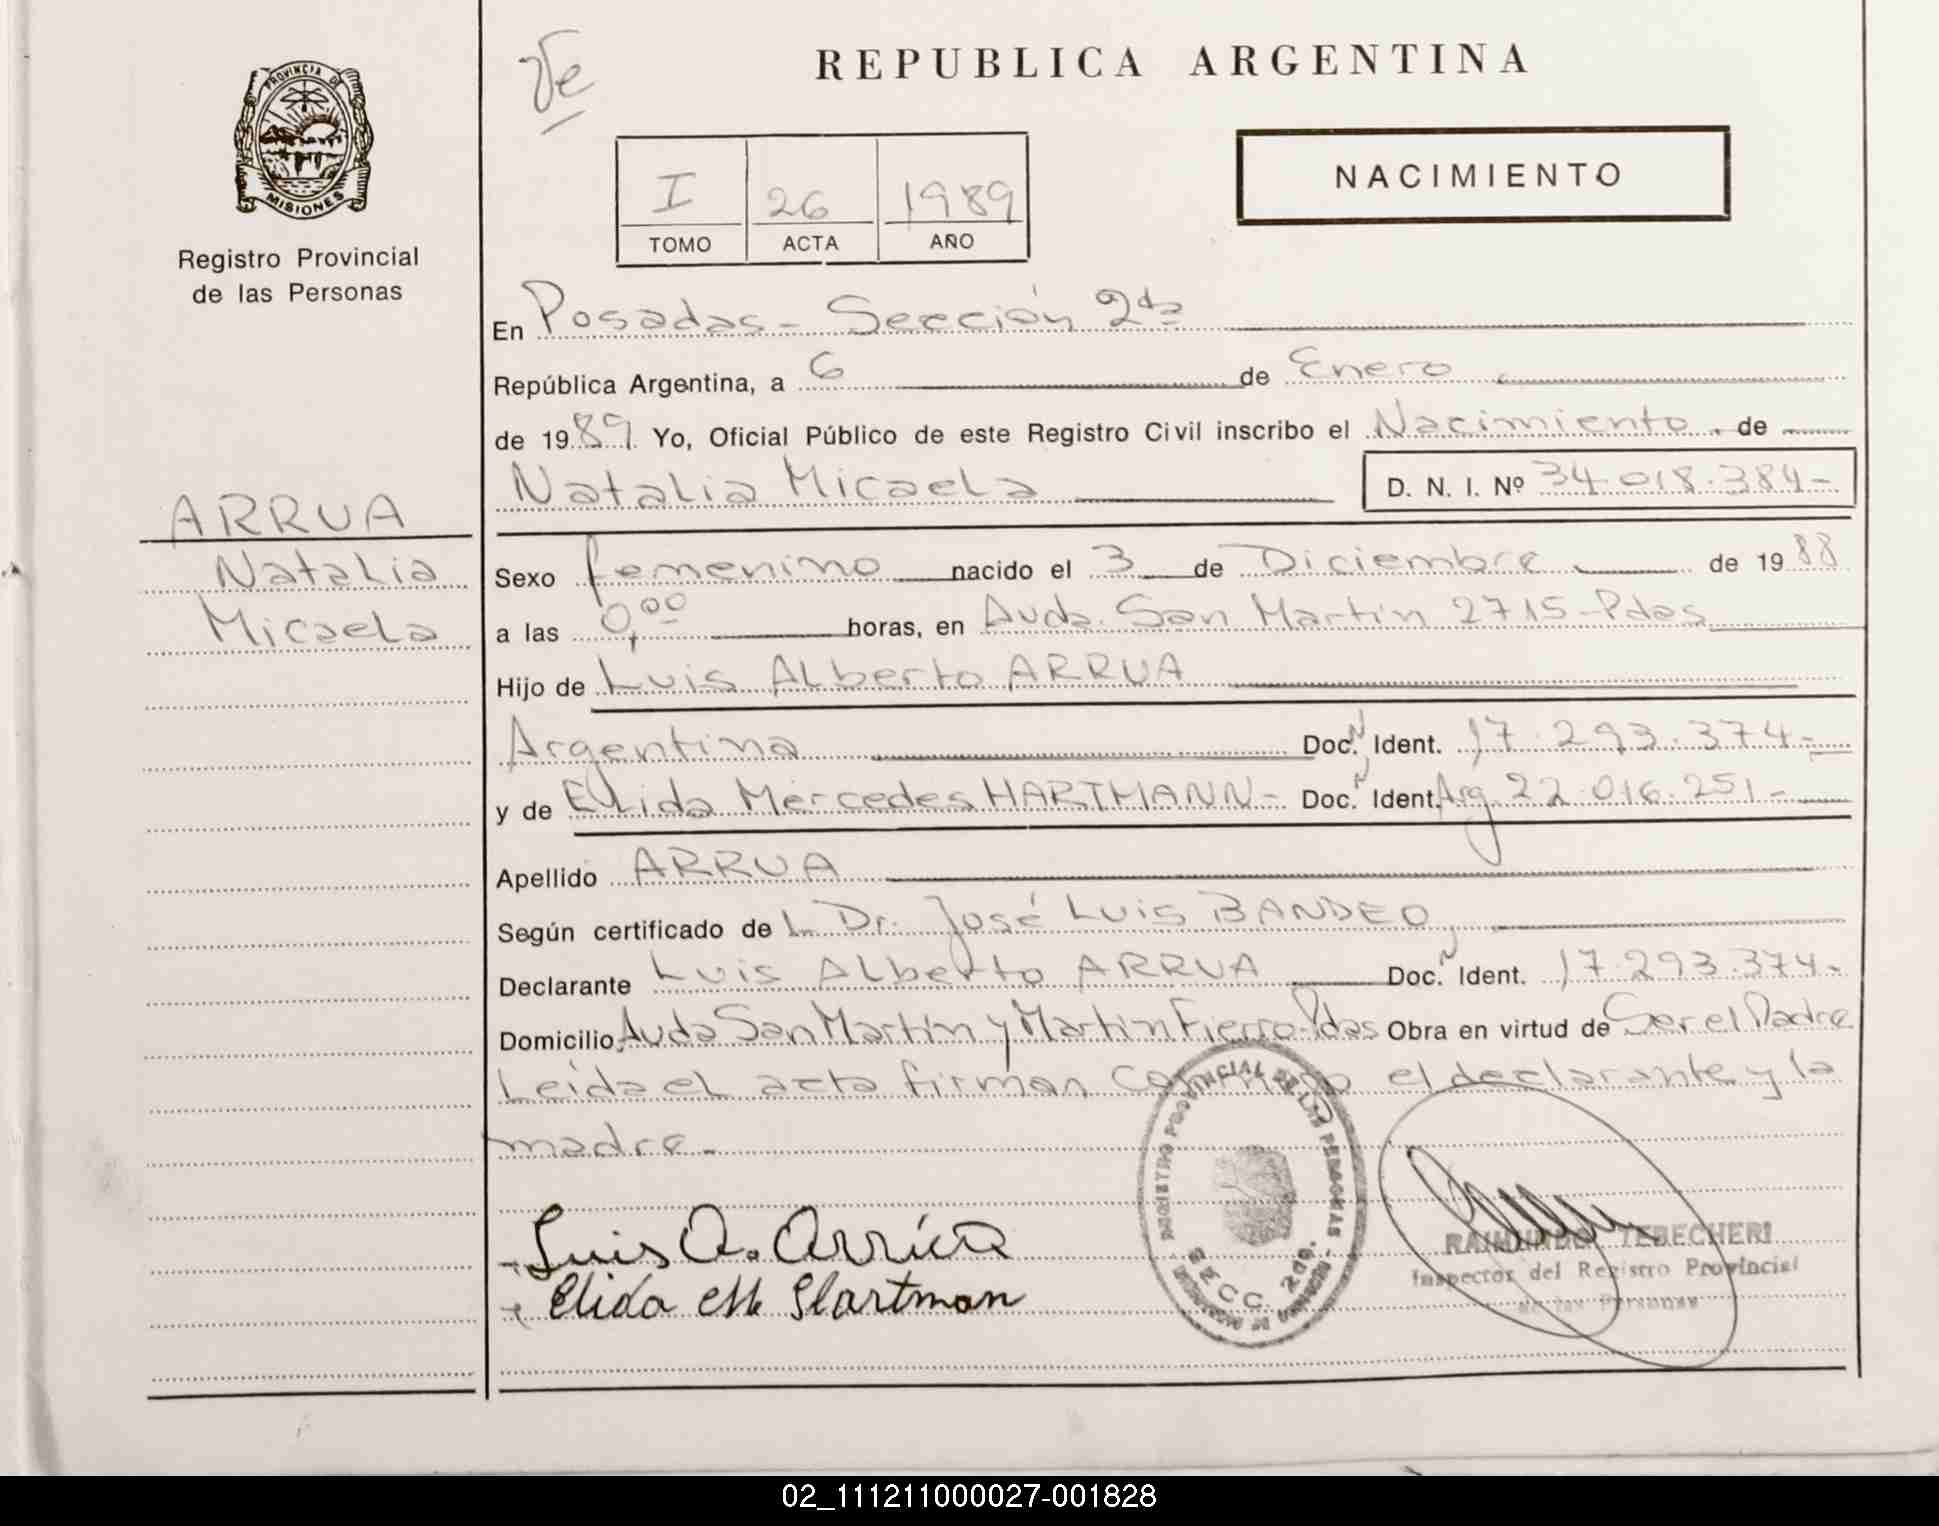 Ve
REPUBLICA ARGENTINA
PROVINCIA DE
MISIONES
Registro Provincial
de las Personas
NACIMIENTO
I 26 1989
TOMO ACTA AÑO
En Posadas - Sección 2da
República Argentina, a 6 de Enero
de 1989. Yo, Oficial Público de este Registro Civil inscribo el Nacimiento. de
Natalia Micaela D. N. I. Nº 34.018.384-
ARRUA
Natalia
Micaela
Sexo femenino nacido el 3 de Diciembre de 1988
a las 0,00 horas, en Avda. San Martín 2715 - Pdas
Hijo de Luis Alberto ARRUA
Argentina Doc. N Ident. 17.293.374-
y de Elida Mercedes HARTMANN- Doc. N Ident. Arg. 22.016.251-
Apellido ARRUA
Según certificado de L Dr. José Luis BANDEO
Declarante Luis Alberto ARRUA Doc. N Ident. 17.293.374-
Domicilio Avda San Martín y Martin Fierro-Pdas Obra en virtud de Ser el Padre
Leída el acta firman conmigo el declarante y la
madre-
REGISTRO PROVINCIAL DE LAS PERSONAS
SECC. 2da.
- Luis A. Arrúa
- Elida M. Hartman
RAIMUNDO TEBECHERI
Inspector del Registro Provincial
de las Personas
02_111211000027-001828